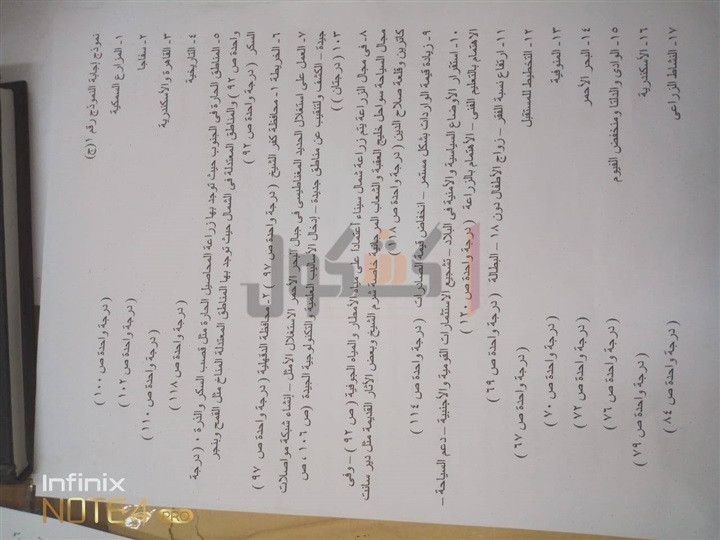 نموذج إجابة النموذج رقم ١(ج)
١- المزارع السمكية ( درجة واحدة ص ١٠٠ )
٢- سفاجا ( درجة واحدة ص ١٠٢ )
٣- القاهرة والأسكندرية ( درجة واحدة ص ١١٠ )
٤- التاريخية ( درجة واحدة ص ١١٨ )
٥- المناطق الحارة فى الجنوب حيث توجد بها زراعة المحاصيل الحارة مثل قصب السكر والذرة . ( درجة
واحدة ص ٩٢ ) والمناطق المعتدلة فى الشمال حيث توجد بها المناطق المعتدلة المناخ مثل القمح وبنجر
السكر ( درجة واحدة ص ٩٢ )
٦- الخريطة ١- محافظة كفر الشيخ ( درجة واحدة ص ٩٧ ) ٢- محافظة الدقهلية ( درجة واحدة ص ٩٧ )
٧- العمل على استغلال الحديد المغناطيسى فى جبال البحر الأحمر الاستغلال الأمثل – إنشاء شبكة مواصلات
جيدة – الكشف والتنقيب عن مناطق جديدة – إدخال الأساليب العلمية والتكنولوجية الجيدة (ص ١٠٦ ، ص
١٠٣ ( درجتان ) )
٨- فى مجال الزراعة يتم زراعة شمال سيناء أعتمادا على مياه الأمطار والمياه الجوفية ( ص ٩٢ ) – وفى
مجال السياحة سواحل خليج العقبة والشعاب المرجانية خاصة شرم الشيخ وبعض الأثار القديمة مثل دير سانت
كاترين وقلعة صلاح الدين ( درجة واحدة ص ١١٨ )
٩- زيادة قيمة الواردات بشكل مستمر – انخفاض قيمة الصادرات ( درجة واحدة ص ١١٤ )
١٠- استقرار الأوضاع السياسية والأمنية فى البلاد – تشجيع الاستثمارات القومية والأجنبية – دعم السياحة –
الاهتمام بالتعليم الفنى – الأهتمام بالزراعة ( درجة واحدة ص ١٢٠ )
١١- ارتفاع نسبة الفقر – زواج الأطفال دون ١٨ – البطالة ( درجة واحدة ص ٦٩ )
١٢- التخطيط للمستقبل ( درجة واحدة ص ٦٧ )
١٣- المنوفية ( درجة واحدة ص ٧٠ )
١٤- البحر الأحمر ( درجة واحدة ص ٧٢ )
١٥- الوادى والدلتا ومنخفض الفيوم ( درجة واحدة ص ٧٦ )
١٦- الأسكندرية ( درجة واحدة ص ٧٩ )
١٧- النشاط الزراعى ( درجة واحدة ص ٨٤ )
كشكول
Infinix
NOTE4 PRO